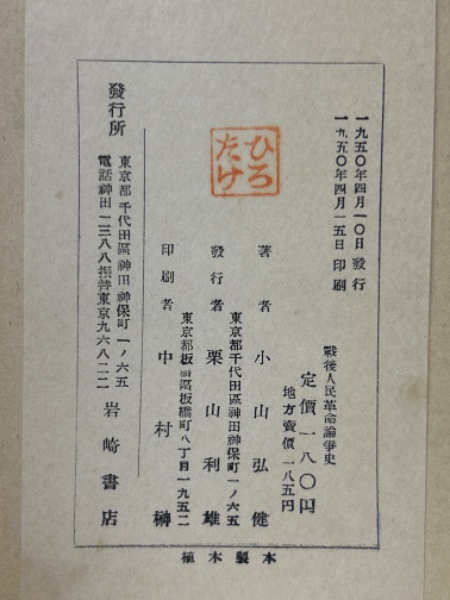 一九五〇年四月一〇日 發行
一九五〇年四月一五日 印刷
戰後人民革命論爭史
定價一八〇円
地方賣價 一八五円
著者 小山弘健
東京都千代田區神田神保町一ノ六五
發行者 栗山利雄
東京都板橋區板橋町八丁目一九五二
印刷者 中村榊
ひろたけ
東京都千代田區神田神保町一ノ六五
發行所 岩崎書店
電話神田一三八八振替東京九六八二二
植木製本